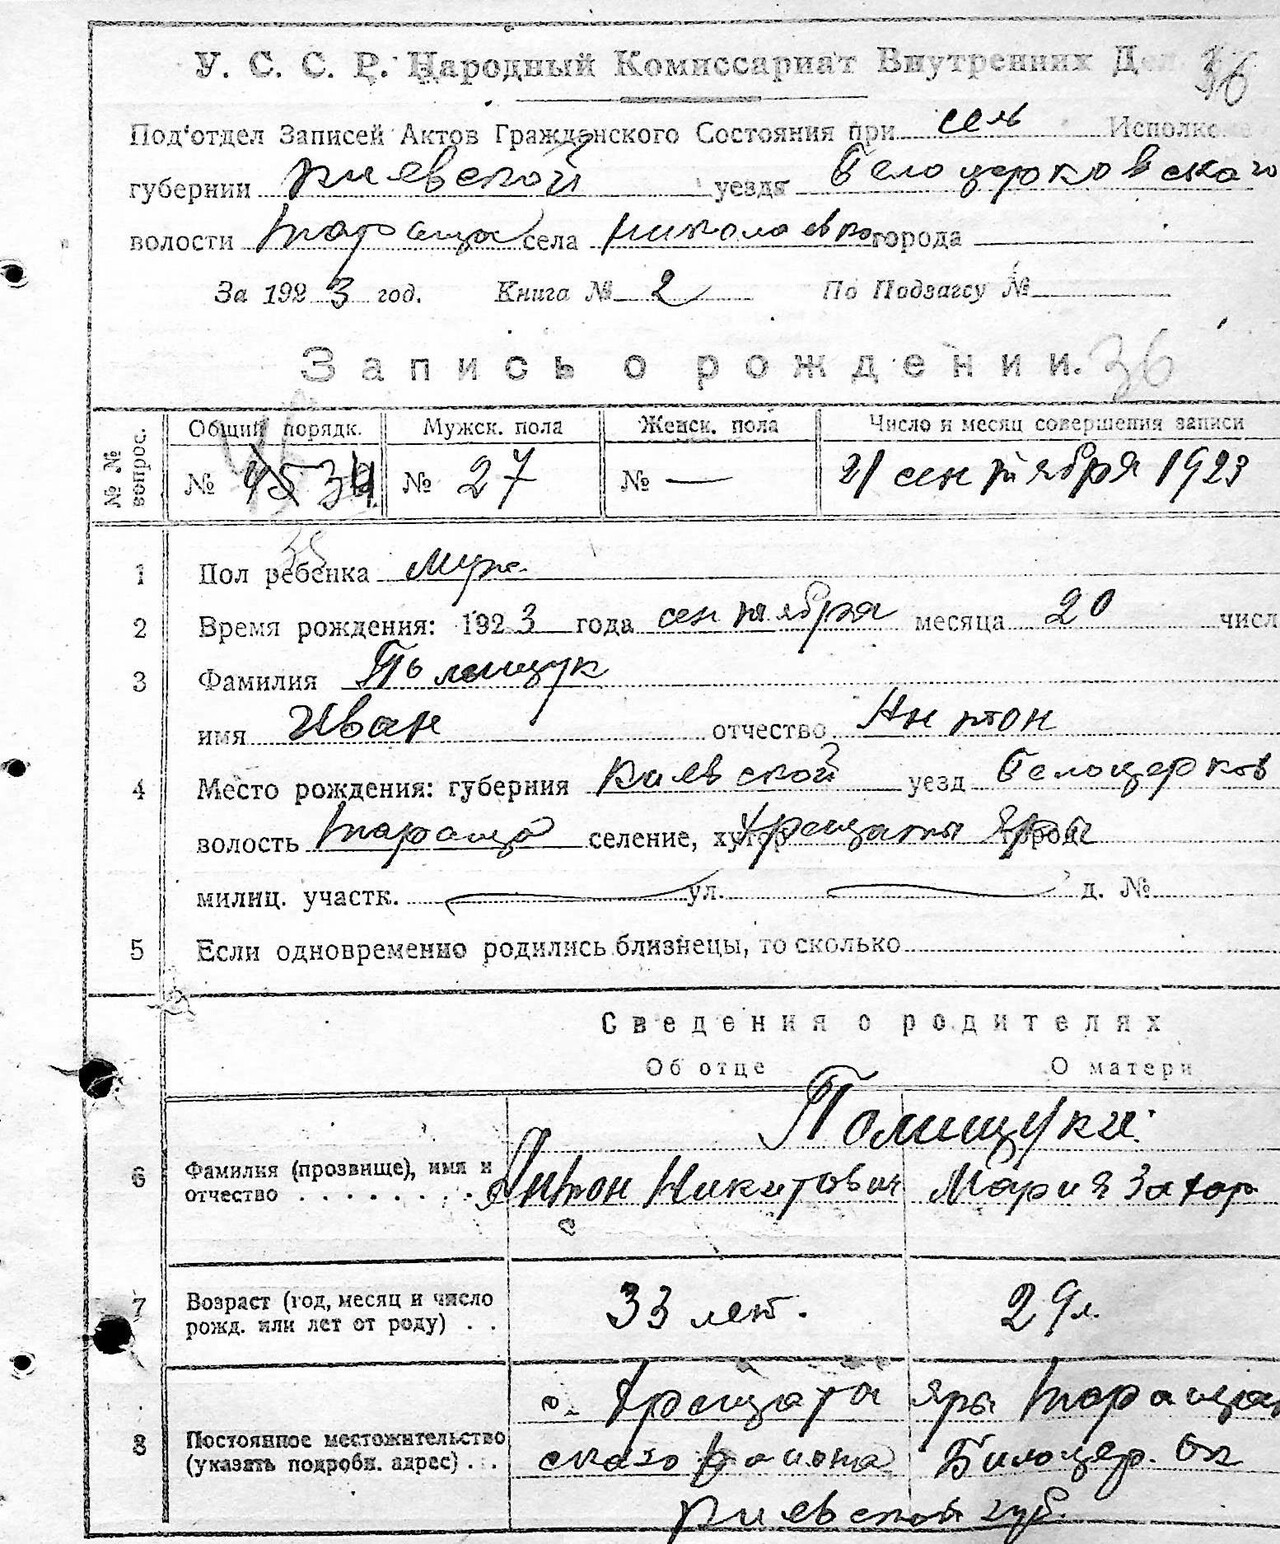 У. С. С. Р. Народный Комиссариат Внутренних Дел. 36
Под'отдел Записей Актов Гражданского Состояния при сель Исполкоме
губернии Киевской уезда Белоцерковскаго
волости Тараща села Николаевка города
За 1923 год. Книга № 2 По Подзагсу №
Запись о рождении. 36
№ № вопрос. Общий порядк. Мужск. пола Женск. пола Число и месяц совершения записи
№ 45 34 № 27 № — 21 сентября 1923
35
1 Пол ребенка Муж.
2 Время рождения: 1923 года сентября месяца 20 числ
3 Фамилия Полищук
имя Иван отчество Антон
4 Место рождения: губерния Киевской уезд Белоцерков
волость Тараща селение, хутор Хрещаты Яры города
милиц. участк. ул. д. №
5 Если одновременно родились близнецы, то сколько
Сведения о родителях
Об отце О матери
Полищуки
6 Фамилия (прозвище), имя и отчество Антон Никитович Мария Захар
7 Возраст (год, месяц и число рожд. или лет от роду) 33 лет. 29 л.
с. Хрещаті яры Таращан
8 Постоянное местожительство (указать подробн. адрес) скаго района Билоцер. Ок
Киевской губ.